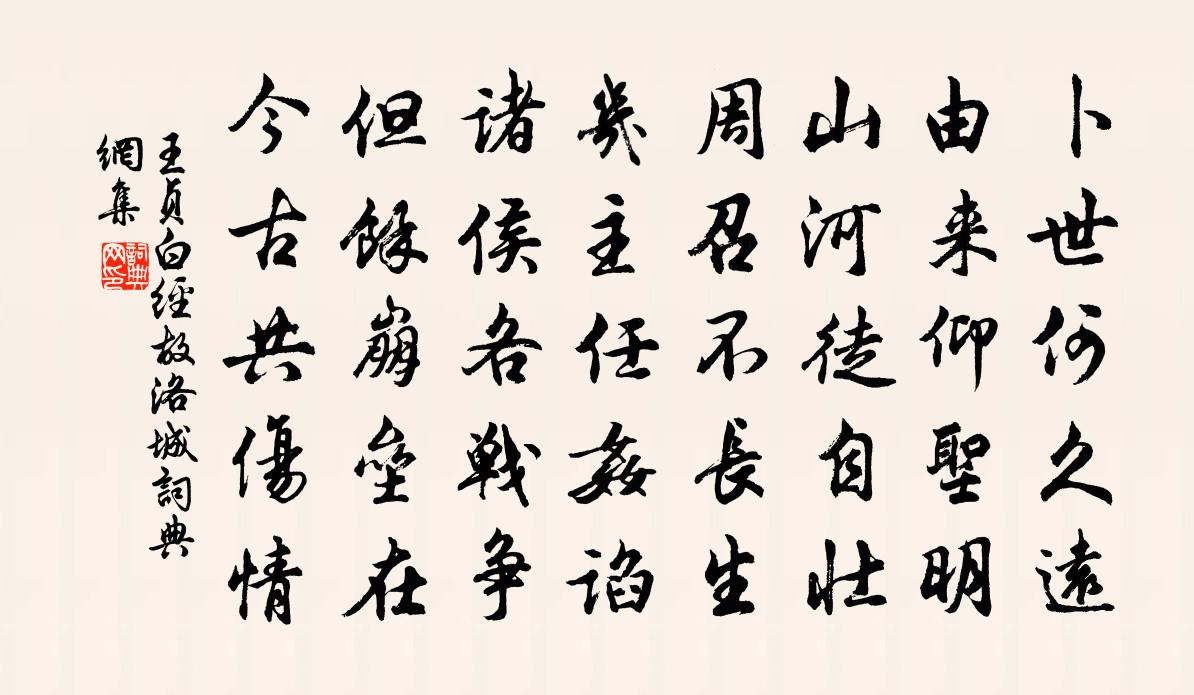 卜世何久遠
由来仰聖明
山河徒自壯
周召不長生
幾主任姦諂
諸侯各戰争
但餘崩壘在
今古共傷情
王貞白經故洛城詞典
網集
詞典
网印